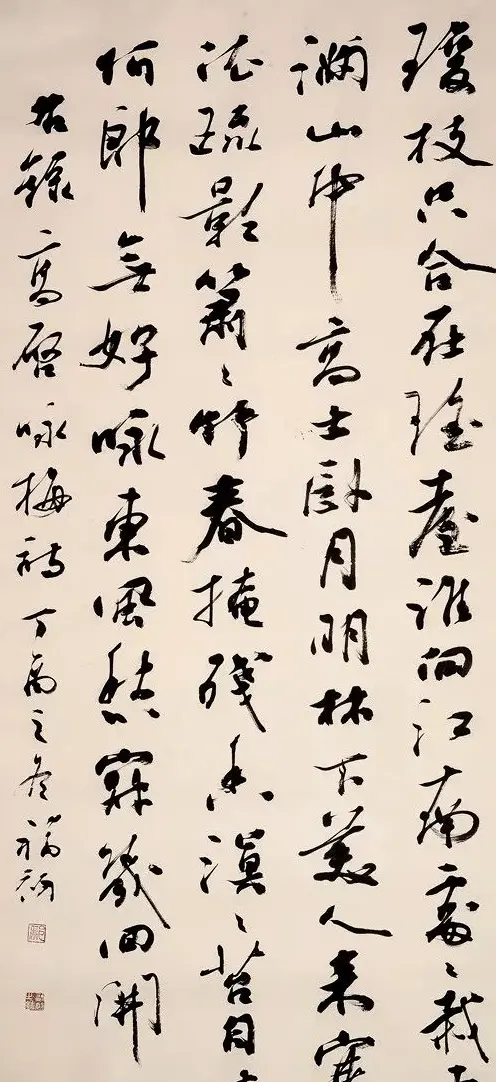 瓊枝只合在瑤臺誰向江南處〻栽
滿山中高士臥月明林下美人來寒
依疏影蕭〻竹春掩殘香漠〻苔自
何郎無好咏東風愁寂幾回開
右錄高啓咏梅詩丁酉之冬福